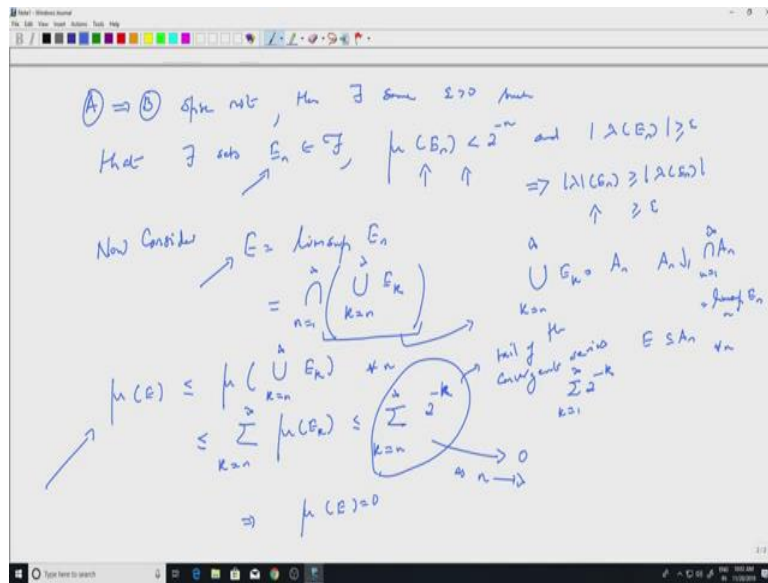 Note1 - Windows Journal
File Edit View Insert Actions Tools Help
Ⓐ ⇒ Ⓑ spse not, then ∃ some ε>0 such
that ∃ sets E_n ∈ F, μ(E_n) < 2^{-n} and |λ(E_n)| ≥ ε
⇒ |λ|(E_n) ≥ |λ(E_n)|
≥ ε
Now Consider E = limsup E_n
= ∩_{n=1}^∞ (∪_{k=n}^∞ E_k)
∪_{k=n}^∞ E_k = A_n A_n ↓ ∩_{n=1}^∞ A_n
= limsup_n E_n
E ⊆ A_n ∀ n
μ(E) ≤ μ(∪_{k=n}^∞ E_k) ∀ n
≤ Σ_{k=n}^∞ μ(E_k) ≤ Σ_{k=n}^∞ 2^{-k}
tail of the
convergent series
Σ_{k=1}^∞ 2^{-k}
→ 0
as n → ∞
⇒ μ(E) = 0
2/2
Type here to search
ENG
IN
11/20/2018